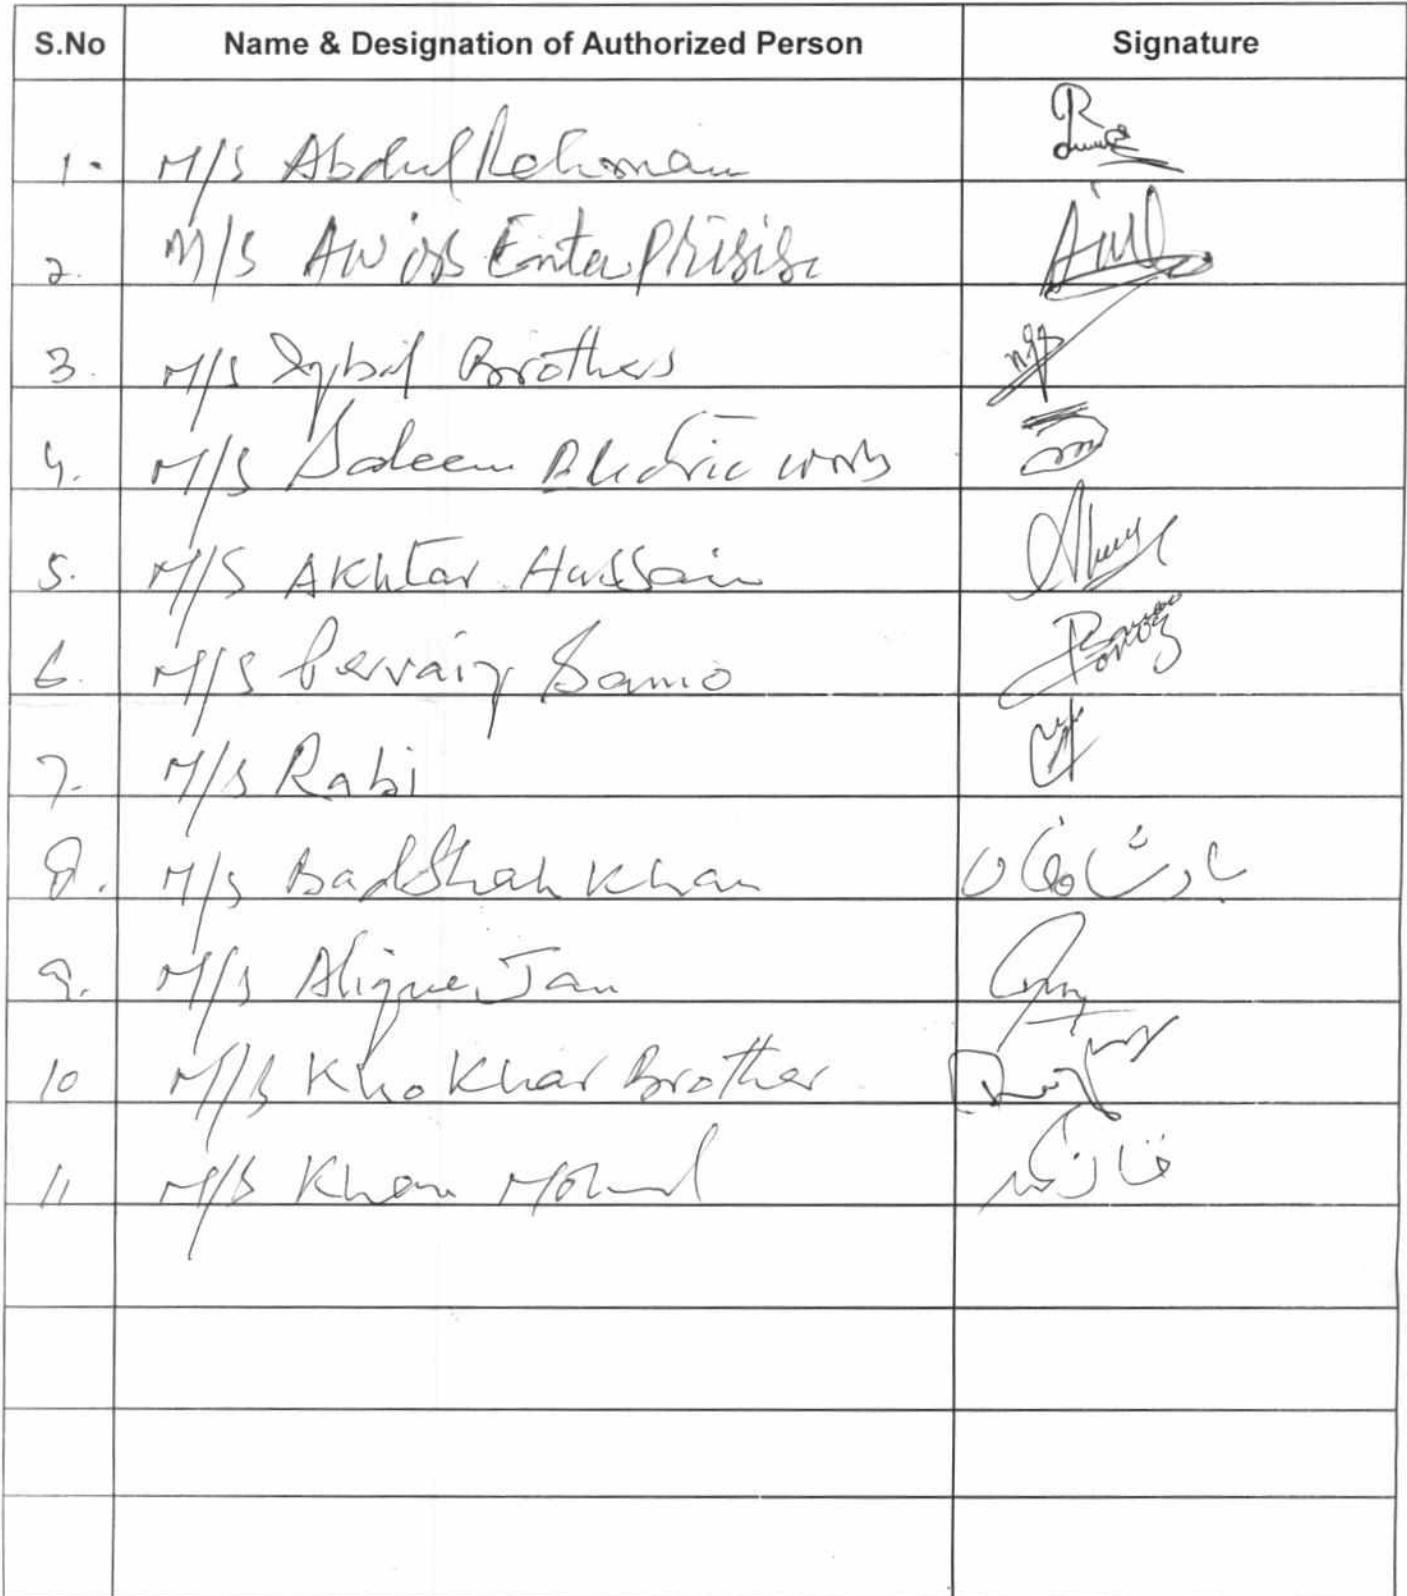 S.No Name & Designation of Authorized Person Signature
1. M/S Abdul Rehman
2. M/S Awais Enterprisise
3. M/S Iqbal Brothers
4. M/S Saleem Electric works
5. M/S Akhtar Hussain
6. M/S Pervaiz Samo
7. M/S Rabi
8. M/S BadShah Khan بادشاہ خان
9. M/S Alique Jan
10 M/S KhoKhar Brother
11 M/S Khan Mohmd خان محمد